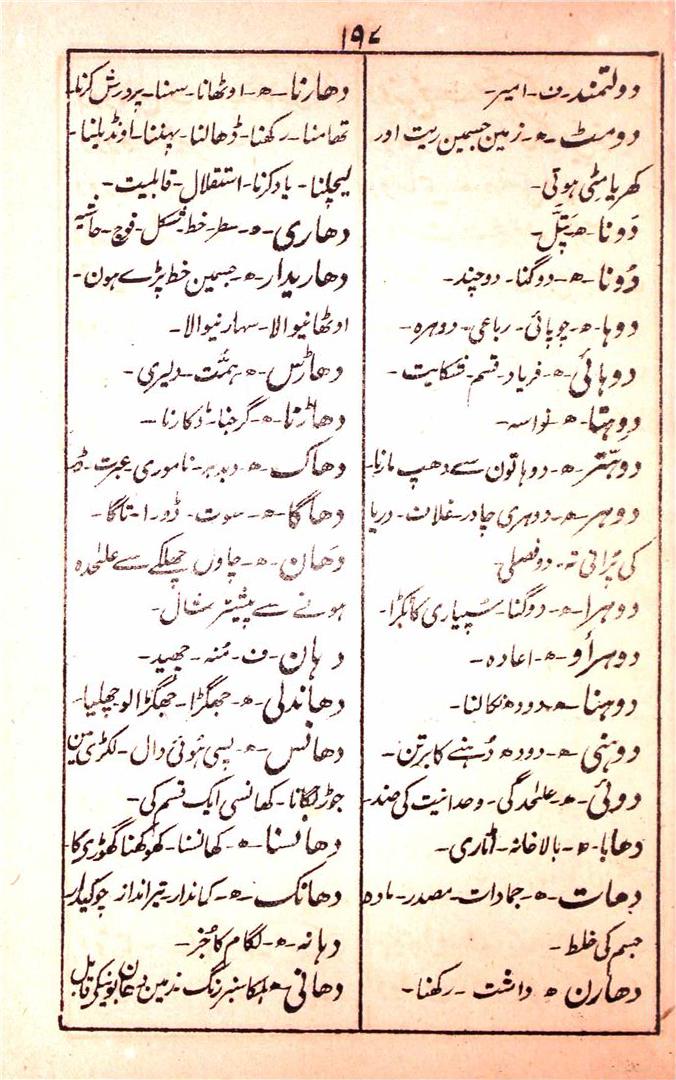 ۱۹۸
دولتمند۔ف۔امیر۔
دومٹ۔ھ۔زمین جسمین ریت اور
کھریا مٹی ہوتی۔
دَونا۔ھ۔پتّل۔
دُونا۔ھ۔دوگنا۔دوچند۔
دوہا۔ھ۔چوپائی۔رباعی۔دوہرہ۔
دوہائی۔ھ۔فریاد۔قسم۔شکایت۔
دوہتا۔ھ۔نواسہ۔
دوہتّر۔ھ۔دوہاتون سے دھپ مارنا۔
دوہر۔ھ۔دوہری چادر۔غلاف۔دریا
کی پُرانی تہ۔دوفصلی۔
دوہرا۔ھ۔دوگنا۔سُپیاری کا ٹکڑا۔
دوہراؤ۔ھ۔اعادہ۔
دوہنا۔ھ۔دودھ نکالنا۔
دوہنی۔ھ۔دودھ دُہنے کا برتن۔
دوئی۔ھ۔علٰحدگی۔وحدانیت کی ضد۔
دھابا۔ھ۔بالاخانہ۔اٹاری۔
دھات۔ھ۔جمادات۔مصدر۔مادہ
جسم کی خلط۔
دھارن۔ھ۔داشت۔رکھنا۔
دھارنا۔ھ۔اوٹھانا۔سہنا۔پرورش کرنا۔
تھامنا۔رکھنا۔ڈھالنا۔پہننا۔اونڈیلنا۔
لیچلنا۔یادکرنا۔استقلال۔قابلیت۔
دھاری۔ھ۔سطر۔خط۔شکل۔فوج۔حاشیہ
دھاریدار۔ھ۔جسمین خط پڑے ہون۔
اوٹھانیوالا۔سہارنیوالا۔
دھاڑس۔ھ۔ہمّت۔دلیری۔
دھاڑنا۔ھ۔گرجنا۔ڈکارنا۔
دھاک۔ھ۔دبدبہ۔ناموری۔عبرت۔
دھاگا۔ھ۔سوت۔ڈورا۔تاگا۔
دَھان۔ھ۔چاول چھلکے سے علٰحدہ
ہونے سے پیشتر۔شال۔
دہان۔ف۔مُنہ۔چھید۔
دھاندلی۔ھ۔جھگڑا۔جھگڑالو۔چھلیا۔
دھانس۔ھ۔پسی ہوئی دال۔لکڑی مین
جوڑ لگانا۔کھانسی ایک قسم کی۔
دھانسنا۔ھ۔کھانسنا۔کھوکھنا گھوڑی کا۔
دھانک۔ھ۔کماندار۔تیرانداز۔چوکیدار۔
دہانہ۔ھ۔لگام کا جُز۔
دھانی۔ھ۔ہلکا سبز رنگ۔زمین دھان بونیکی قابل